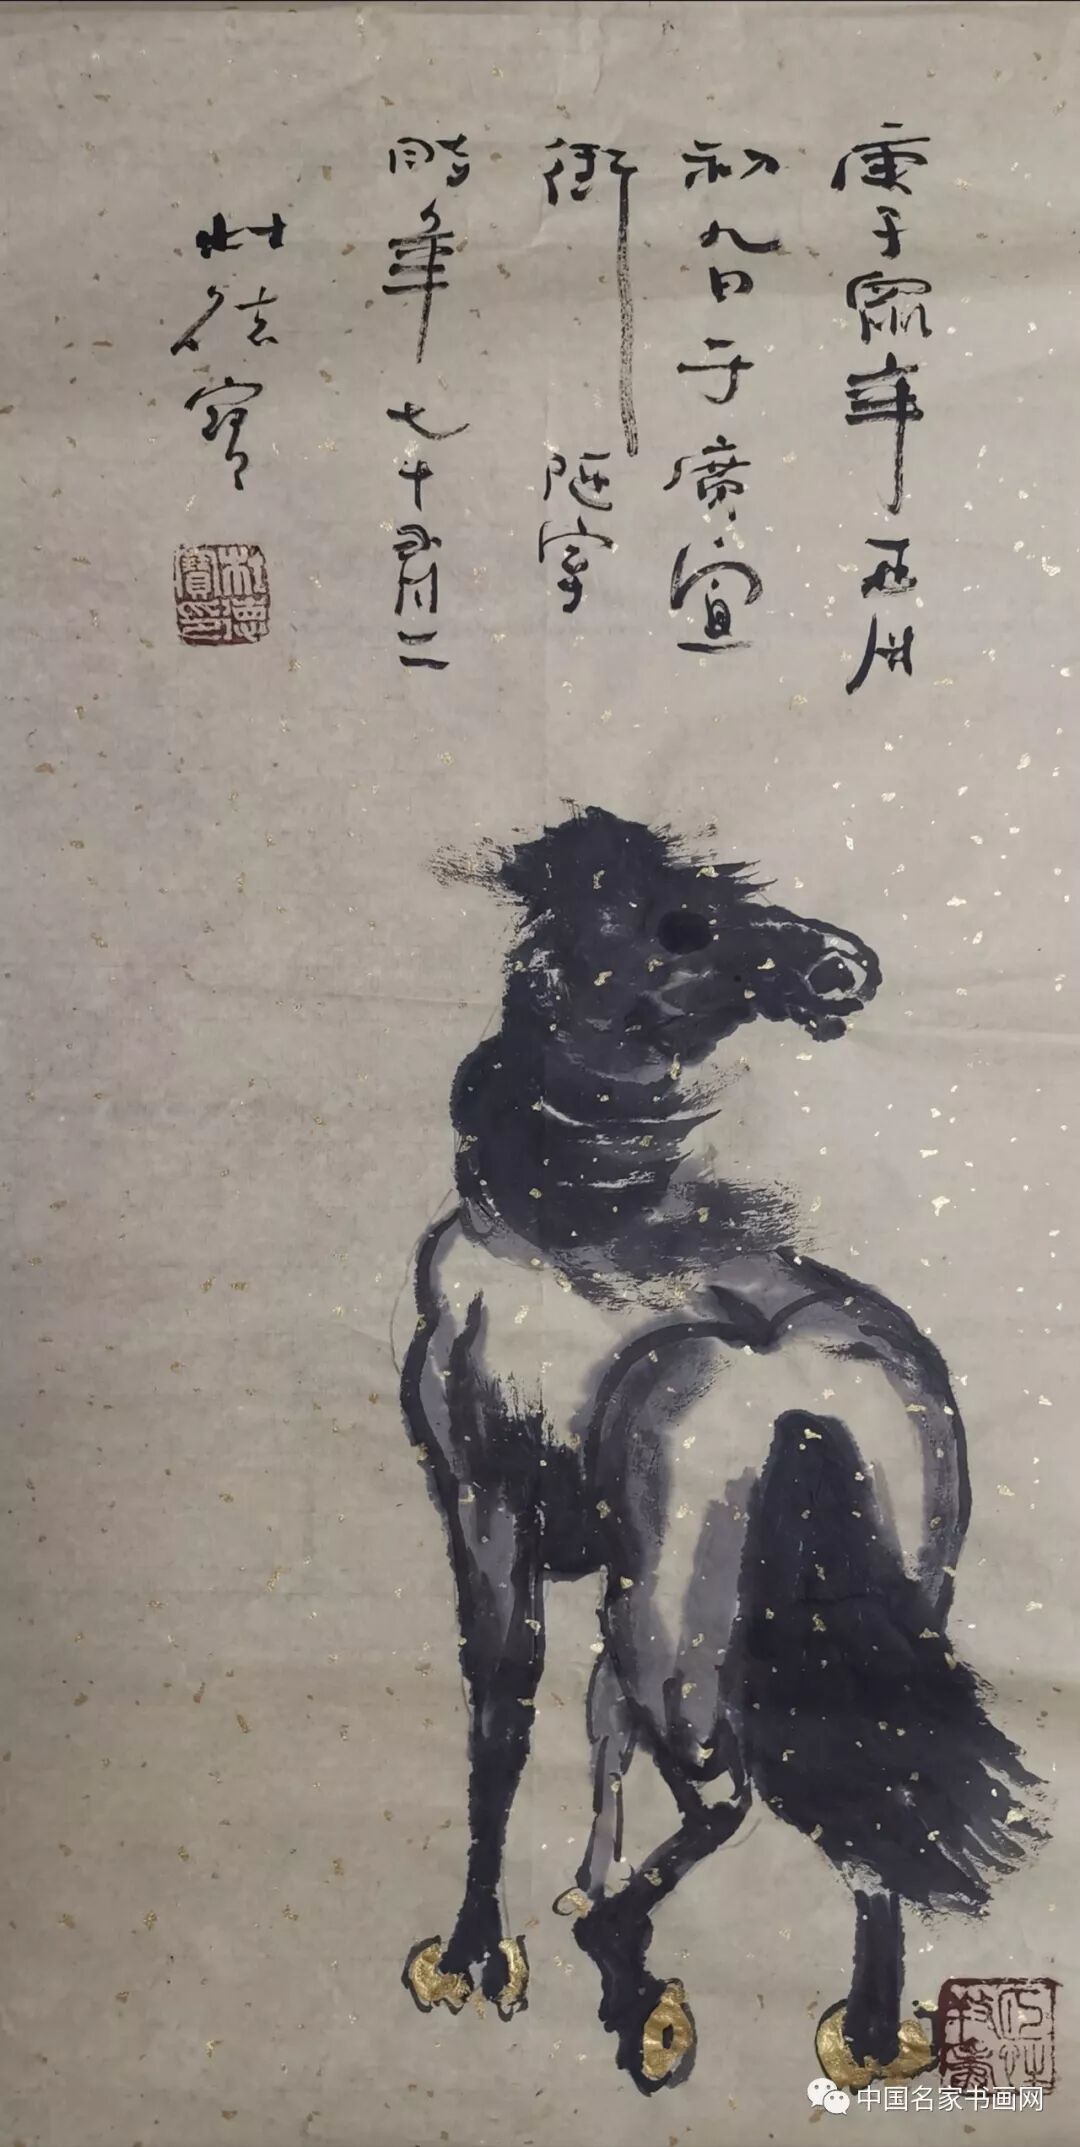 庚子鼠年五月
初九日于廣宣
街陋室
時年七十有二
杜德寶
杜德寶印
中国名家书画网